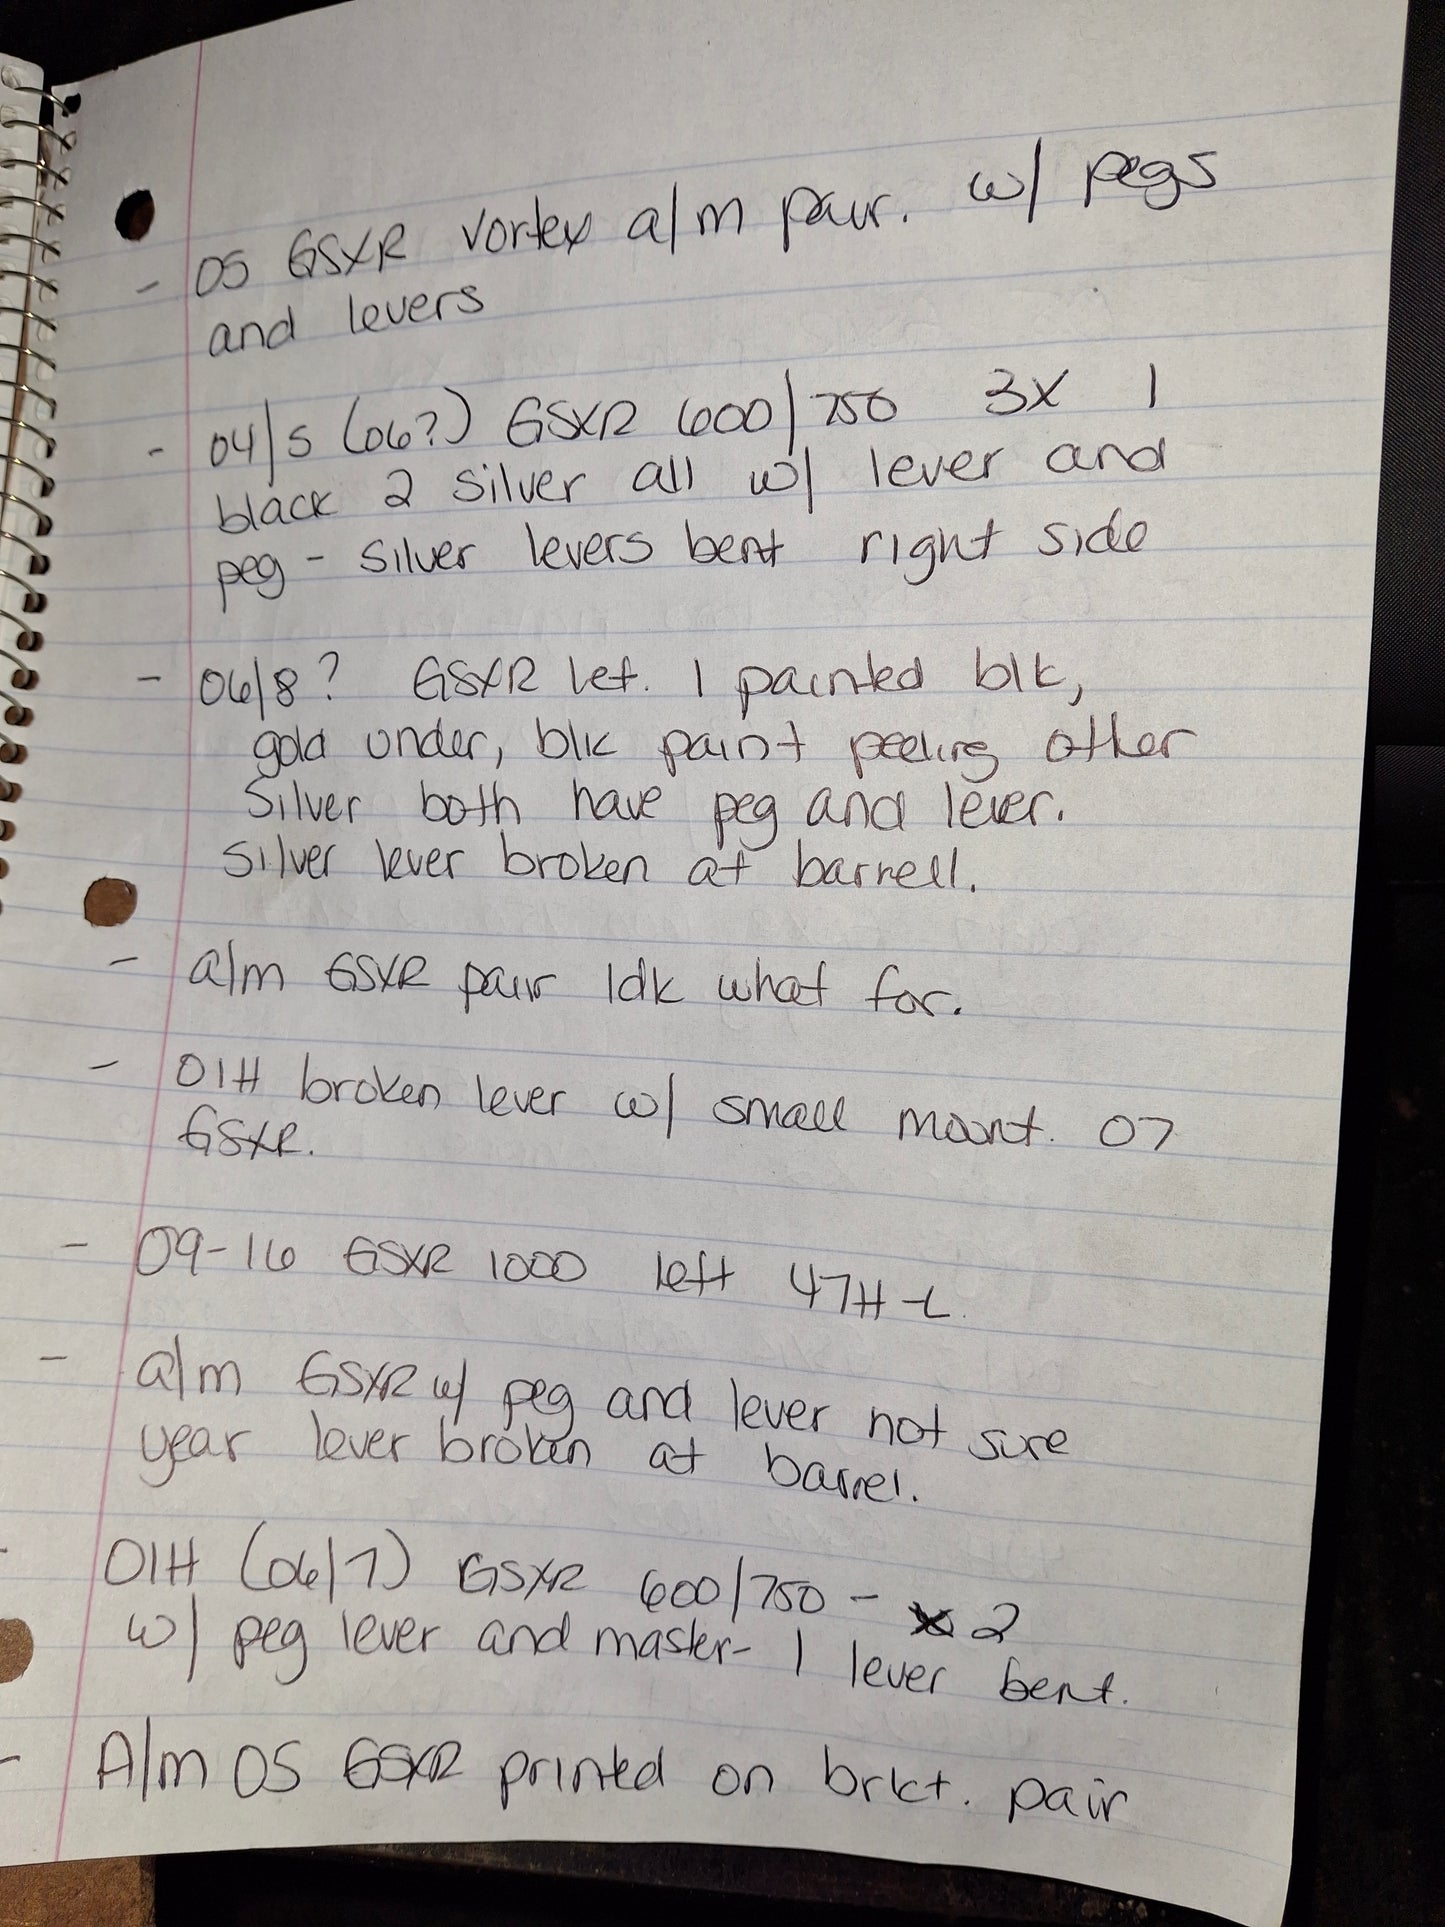 - 05 GSXR vortex a/m pair. w/ pegs
and levers
- 04/5 (06?) GSXR 600/750 3X 1
black 2 silver all w/ lever and
peg - silver levers bent right side
- 06/8? GSXR lef. 1 painted blk,
gold under, blk paint peeling other
Silver both have peg and lever.
Silver lever broken at barrell.
- a/m GSXR pair Idk what for.
- 01H broken lever w/ small mount. 07
GSXR.
- 09-16 GSXR 1000 left 47H-L
- a/m GSXR w/ peg and lever not sure
year lever broken at barrel.
- 01H (06/7) GSXR 600/750 - 2
w/ peg lever and master- 1 lever bent.
- A/m 05 GSXR printed on brkt. pair